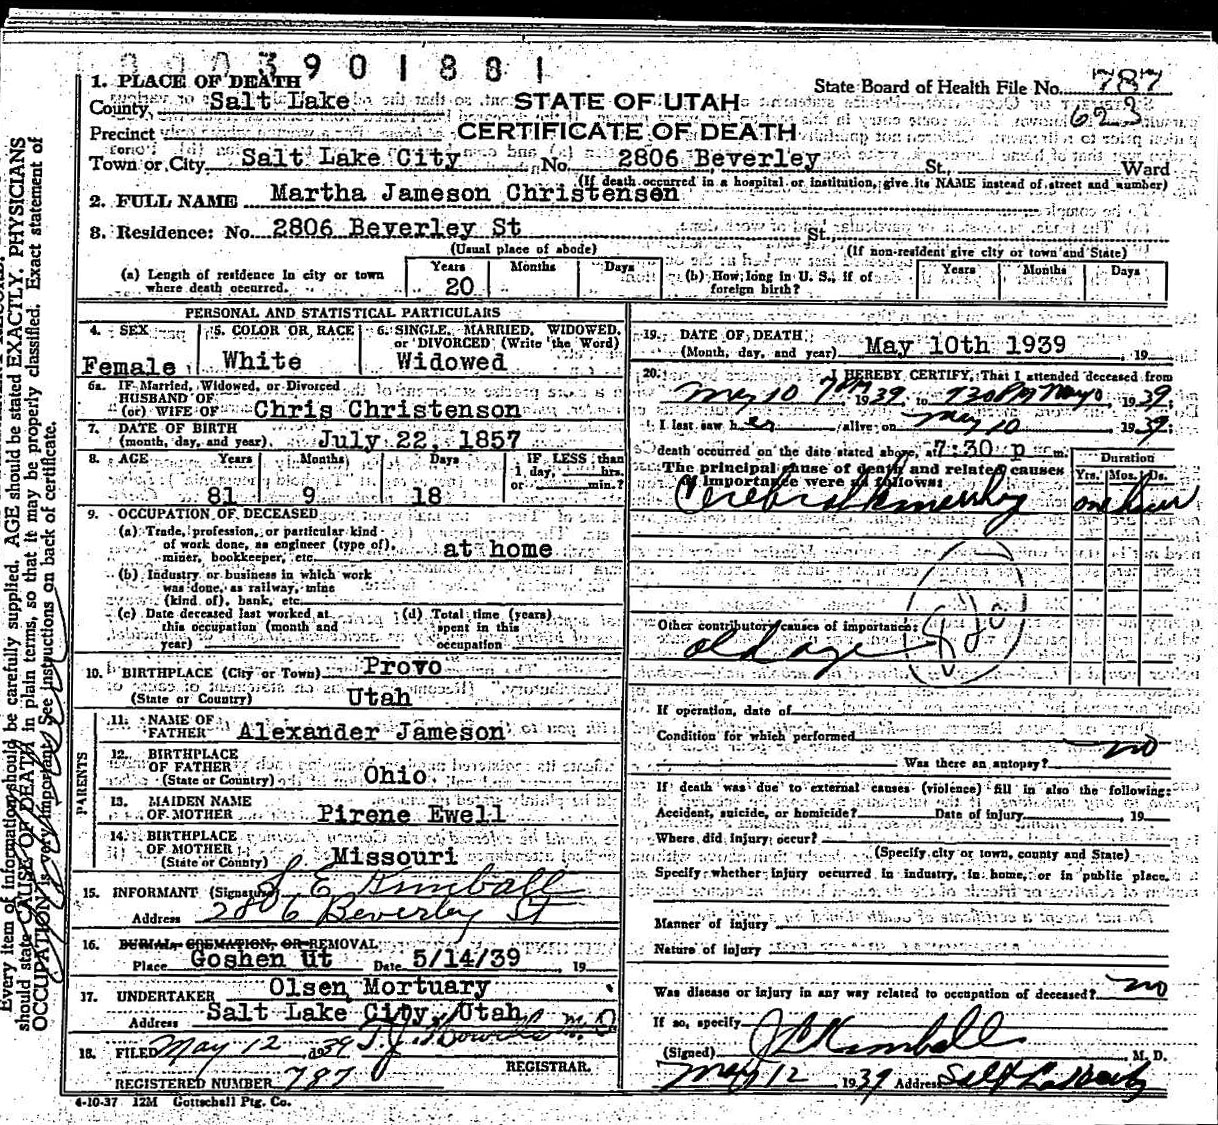 3901881
1. PLACE OF DEATH
County Salt Lake
State Board of Health File No. 787
623
STATE OF UTAH
CERTIFICATE OF DEATH
Precinct
Town or City Salt Lake City No. 2806 Beverley St. Ward
(If death occurred in a hospital or institution, give its NAME instead of street and number)
2. FULL NAME Martha Jameson Christensen
3. Residence: No. 2806 Beverley St St.
(Usual place of abode) (If non-resident give city or town and State)
(a) Length of residence in city or town where death occurred. Years 20 Months Days
(b) How long in U. S., if of foreign birth? Years Months Days
PERSONAL AND STATISTICAL PARTICULARS
4. SEX Female
5. COLOR OR RACE White
6. SINGLE, MARRIED, WIDOWED, or DIVORCED (Write the Word) Widowed
6a. IF Married, Widowed, or Divorced
HUSBAND OF
(or) WIFE OF Chris Christenson
7. DATE OF BIRTH
(month, day, and year). July 22, 1857
8. AGE Years 81 Months 9 Days 18
IF LESS than 1 day, hrs. or min.?
9. OCCUPATION OF DECEASED
(a) Trade, profession, or particular kind of work done, as engineer (type of), miner, bookkeeper, etc. at home
(b) Industry or business in which work was done, as railway, mine (kind of), bank, etc.
(c) Date deceased last worked at this occupation (month and year)
(d) Total time (years) spent in this occupation
10. BIRTHPLACE (City or Town) Provo
(State or Country) Utah
PARENTS
11. NAME OF FATHER Alexander Jameson
12. BIRTHPLACE OF FATHER
(State or Country) Ohio
13. MAIDEN NAME OF MOTHER Pirene Ewell
14. BIRTHPLACE OF MOTHER
(State or County) Missouri
15. INFORMANT (Signature) S E Kimball
Address 2806 Beverley St
16. BURIAL, CREMATION, OR REMOVAL
Place Goshen Ut Date 5/14/39, 19
17. UNDERTAKER Olsen Mortuary
Address Salt Lake City, Utah
18. FILED May 12 1939 M. D.
REGISTRAR.
REGISTERED NUMBER 787
4-10-37 12M Gottschall Ptg. Co.
19. DATE OF DEATH
(Month, day, and year) May 10th 1939, 19
20. I HEREBY CERTIFY, That I attended deceased from
May 10 7 PM, 1939 to 730 PM May 10 1939
I last saw her alive on May 10 1939;
death occurred on the date stated above, at 7:30 p m.
The principal cause of death and related causes of importance were as follows:
Duration
Yrs. Mos. Ds.
Cerebral hemorrhage one hour
Other contributory causes of importance:
old age
If operation, date of
Condition for which performed
Was there an autopsy? no
If death was due to external causes (violence) fill in also the following:
Accident, suicide, or homicide? Date of injury, 19
Where did injury occur?
(Specify city or town, county and State)
Specify whether injury occurred in industry, in home, or in public place.
Manner of injury
Nature of injury
Was disease or injury in any way related to occupation of deceased? no
If so, specify
(Signed) Kimball M. D.
May 12 1939 Address Salt Lake City
Every item of information should be carefully supplied. AGE should be stated EXACTLY. PHYSICIANS
should state CAUSE OF DEATH in plain terms, so that it may be properly classified. Exact statement of
OCCUPATION is very important. See instructions on back of certificate.